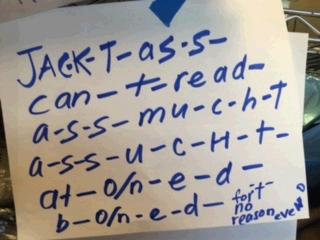 JACK-T-as-s-
can-t-read-
a-s-s-mu-c-h-T
a-s-s-u-c-H-t-
at-o/n-e-d-
b-o/n-e-d- for-t-
no
reason even